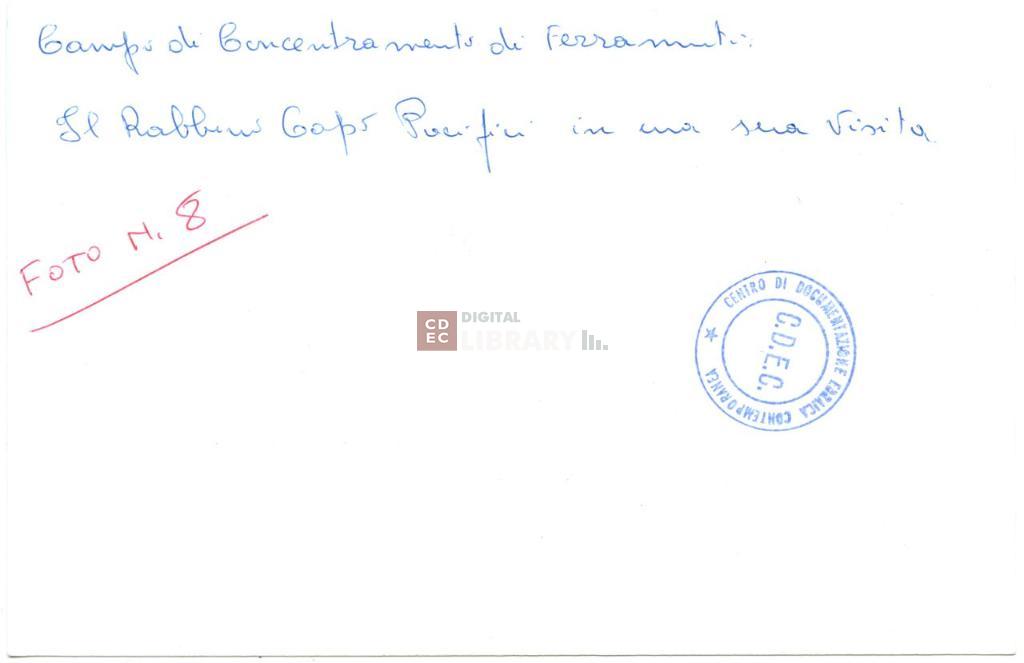 Campo di Concentramento di Ferramonti:
Il Rabbino Capo Pacifici in una sua visita
FOTO N. 8
CENTRO DI DOCUMENTAZIONE EBRAICA CONTEMPORANEA
C.D.E.C.
CDEC DIGITAL LIBRARY